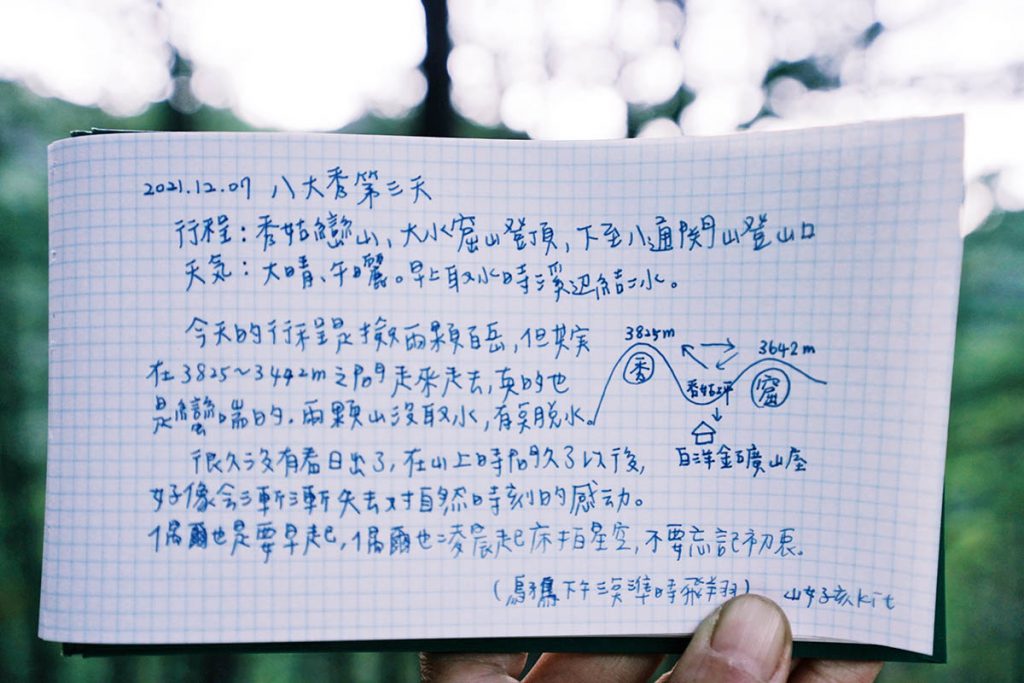 2021.12.07 八大秀第三天
行程：秀姑巒山，大水窟山登頂，下至八通關山登山口
天気：大晴、午曬。早上取水時溪边結冰。
今天的行程是撿兩顆百岳，但其実
在3825～3442m之間走來走去，真的也
是蠻喘的。兩顆山沒取水，有莫脫水。
3825m
3642m
秀
秀姑坪
窟
白洋金礦山屋
很久沒有看日出了，在山上時間久了以後，
好像会漸漸失去对自然時刻的感动。
偶爾也是要早起，偶爾也凌晨起床拍星空，不要忘記初衷。
(烏鴉下午三準時飛翔) 山女孩kit